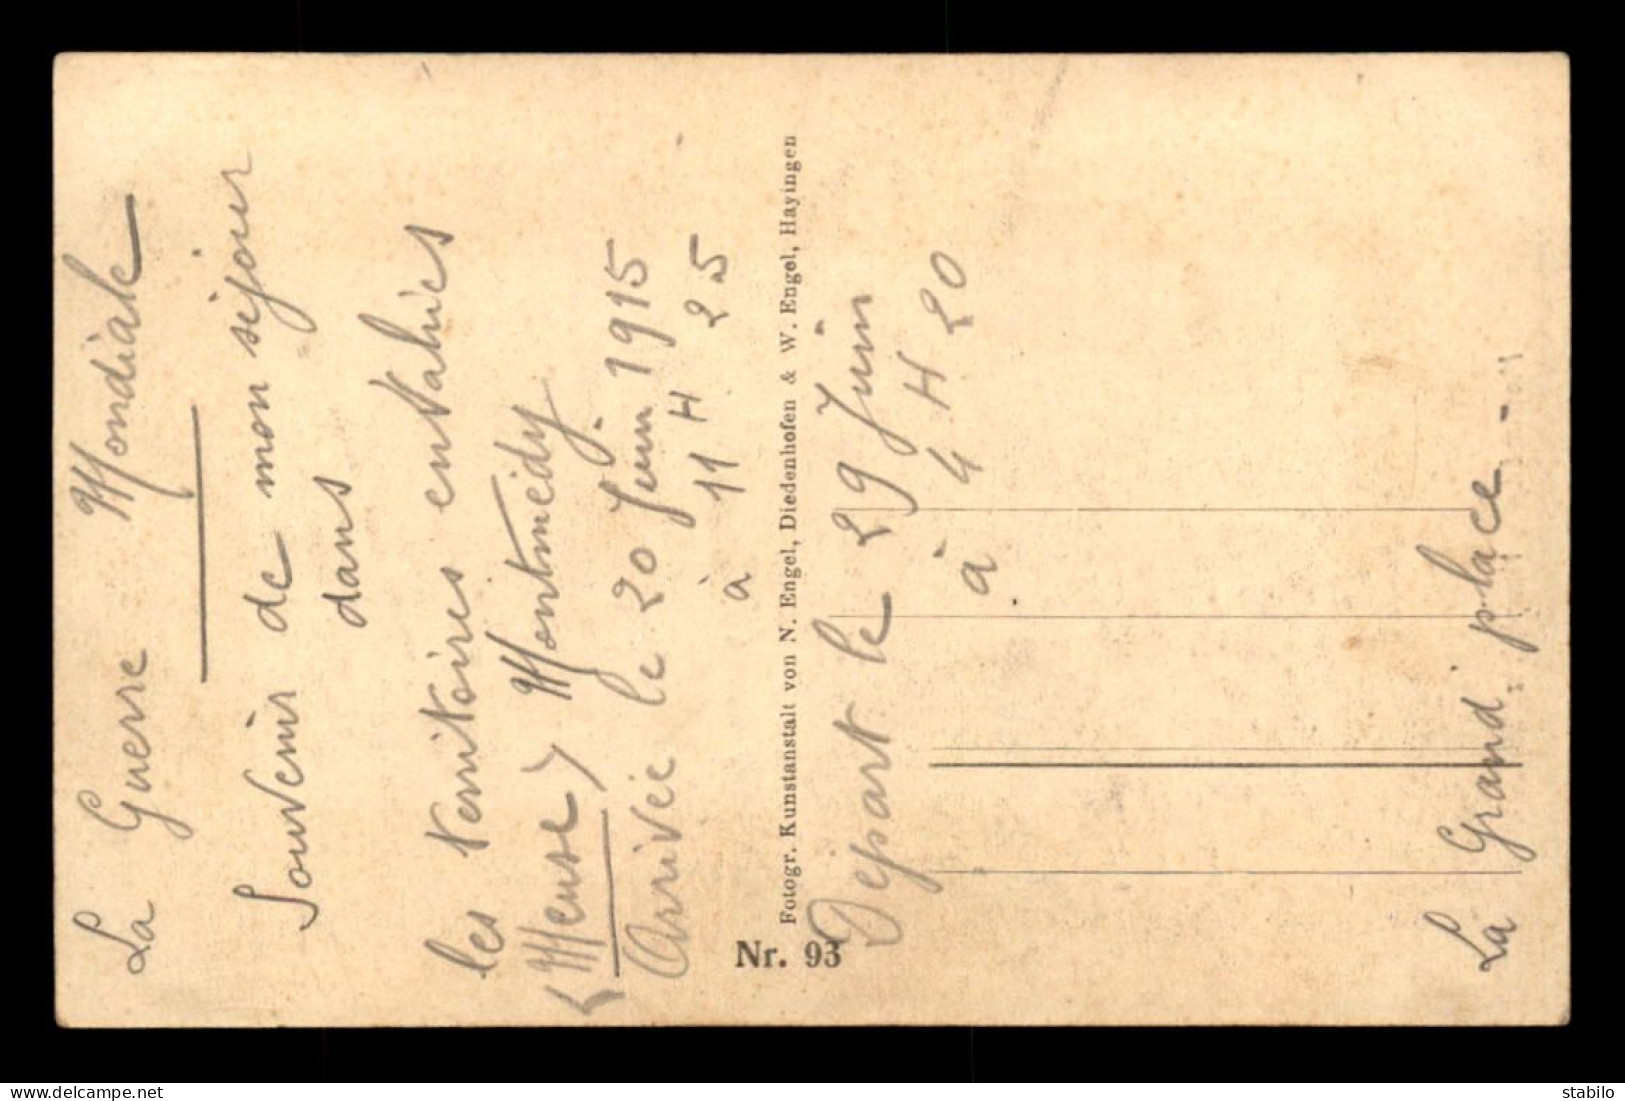 La Guerre Mondiale
Souvenir de mon séjour
dans
les territoires entahies
(Meuse) Montmédy.
Arrivée le 20 Juin 1915
à 11 H 25
Fotogr. Kunstanstalt von N. Engel, Diedenhofen & W. Engel, Hayingen
Nr. 93
Depart le 29 Juin
à 4 H 20
La Grand place -
stabilo